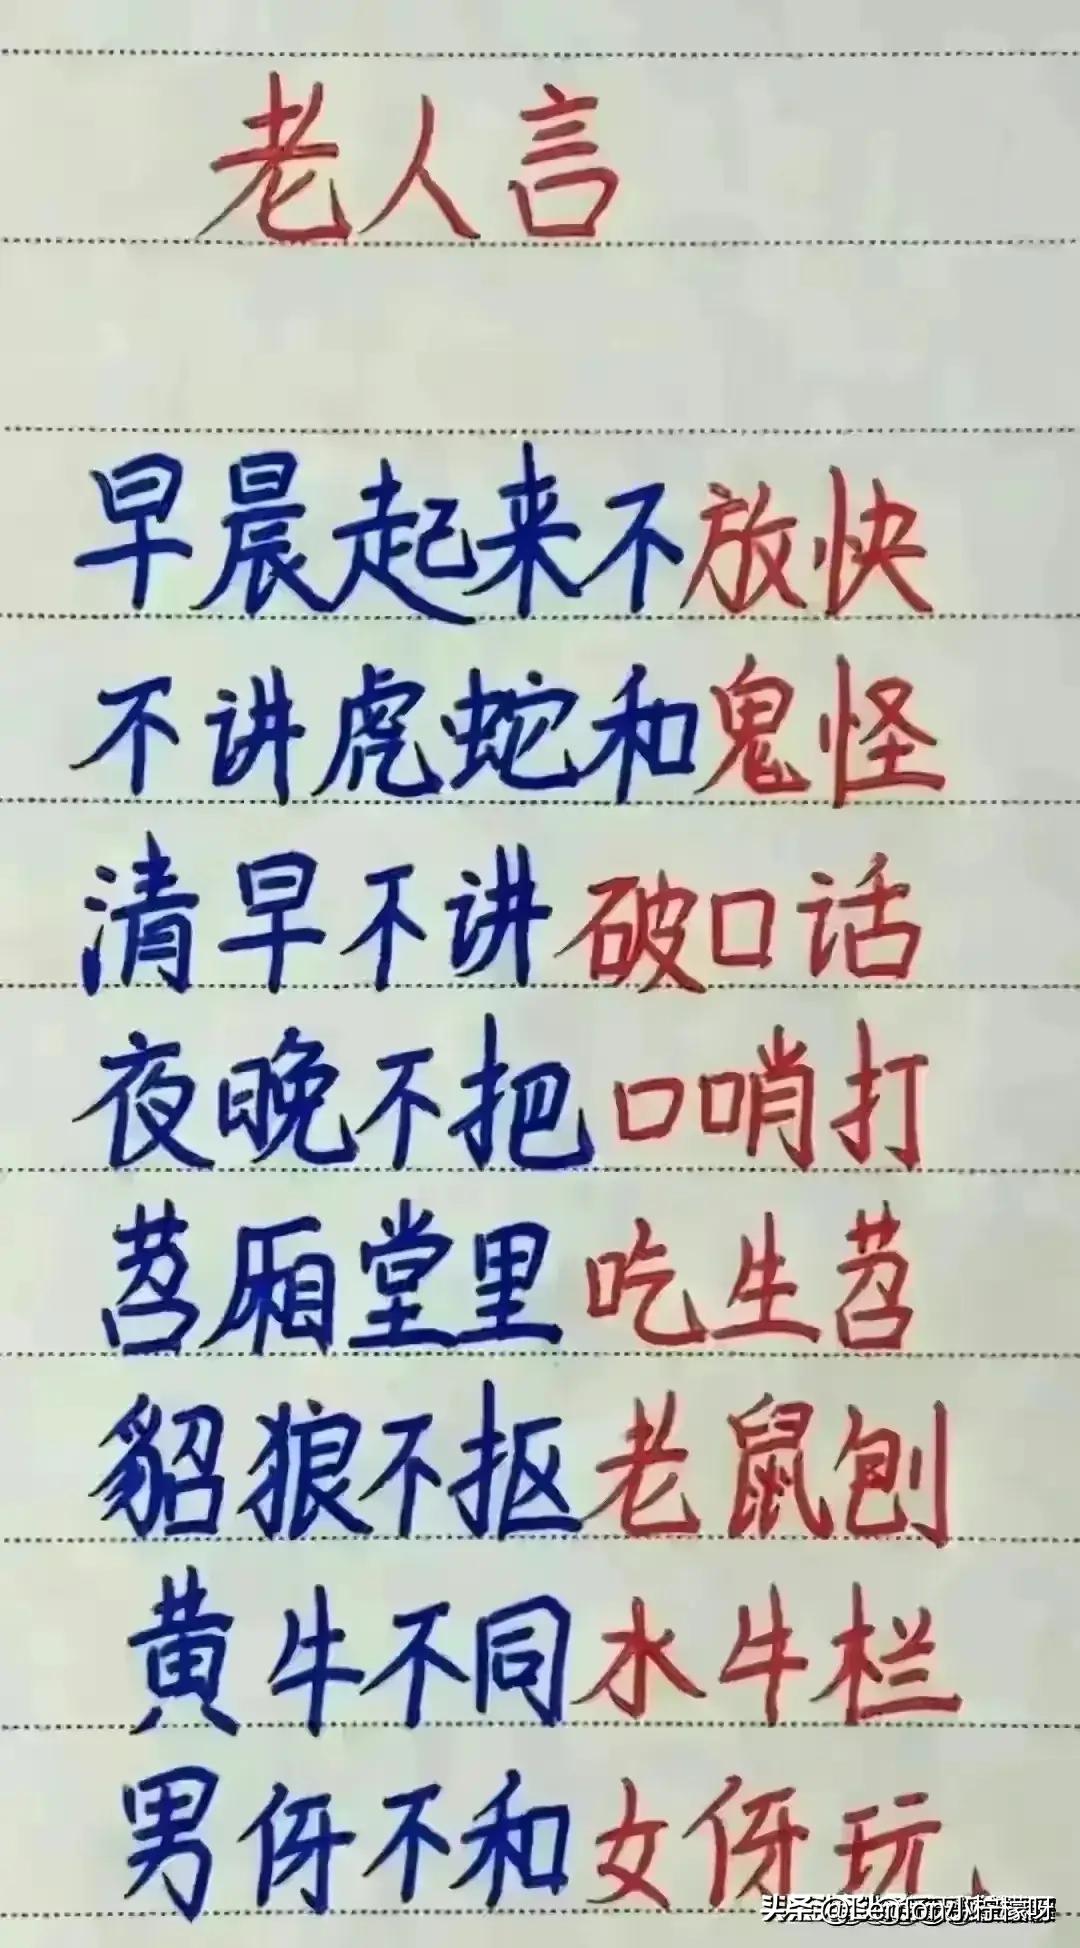 老人言
早晨起来不放快
不讲虎蛇和鬼怪
清早不讲破口话
夜晚不把口哨打
苕厢堂里吃生苕
貂狼不抠老鼠刨
黄牛不同水牛栏
男伢不和女伢玩、
头条@Lemon小柠檬呀